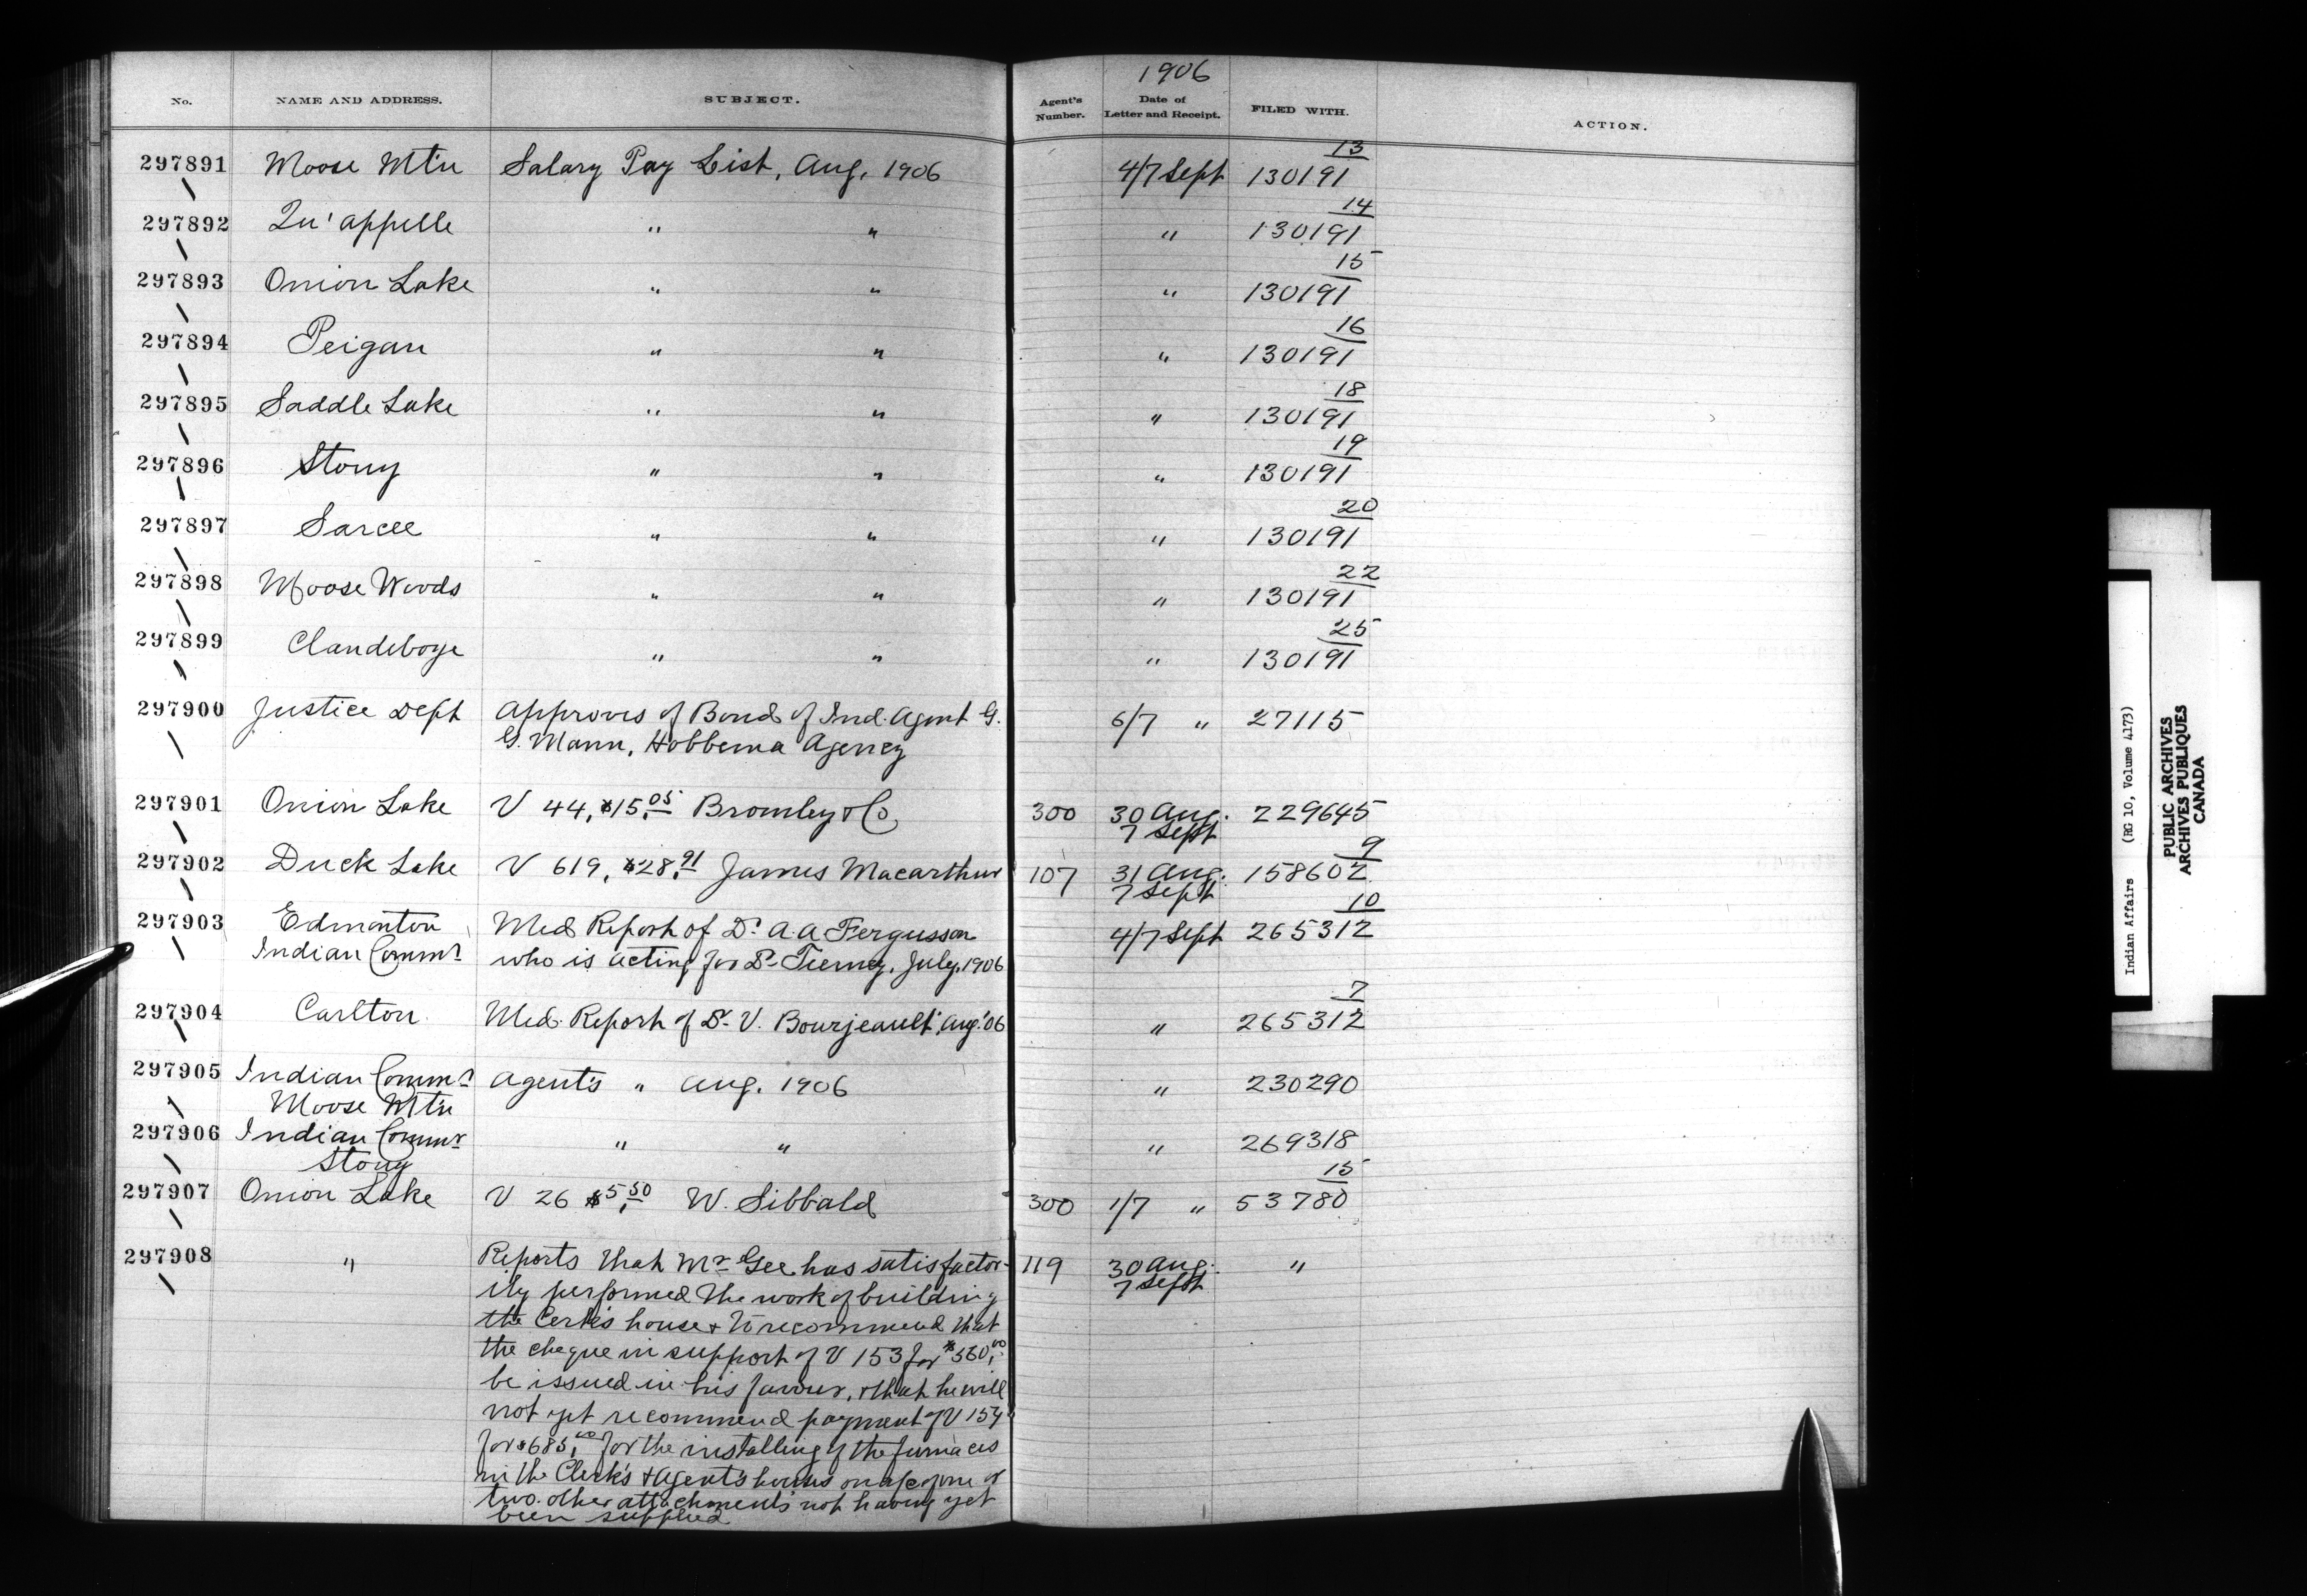 1906
No. NAME AND ADDRESS. SUBJECT. Agent's Number. Date of Letter and Receipt. FILED WITH. ACTION.
297891 Moose Mt'n Salary Pay List, Aug, 1906 4/7 Sept 130191 13
297892 Qu'appelle " " " 130191 14
297893 Onion Lake " " " 130191 15
297894 Peigan " " " 130191 16
297895 Saddle Lake " " " 130191 18
297896 Stony " " " 130191 19
297897 Sarcee " " " 130191 20
297898 Moose Woods " " " 130191 22
297899 Clandeboye " " " 130191 25
297900 Justice Dept Approves of Bond of Ind. Agent G. 6/7 " 27115
G. Mann, Hobbema Agency
297901 Onion Lake V 44, $15.05 Bromley & Co, 300 30 Aug. 229645
7 Sept
297902 Duck Lake V 619, $28.91 James Macarthur 107 31 Aug. 158602 9
7 Sept
297903 Edmonton Med Report of Dr A. A Fergusson 4/7 Sept 265312 10
Indian Commr who is acting for Dr Tierney. July, 1906
297904 Carlton Med. Report of Dr V. Bourjeault, Aug. '06 " 265312 7
297905 Indian Commr Agent's " Aug. 1906 " 230290
Moose Mt'n
297906 Indian Commr " " " 269318
Stony
297907 Onion Lake V 26 $5.50 W. Sibbald 300 1/7 " 53780 15
297908 " Reports that Mr Gee has satisfactor- 119 30 Aug. "
ily performed the work of building 7 Sept
the Cerk's house & to recommend that
the cheque in support of V 153 for $560.00
be issued in his favour, & that he will
not yet recommend payment of V 154
for $685.00 for the installing of the furnaces
in the Clerk's & Agent's houses on a/c of one or
two other attachments not having yet
been supplied
Indian Affairs (RG 10, Volume 4173)
PUBLIC ARCHIVES
ARCHIVES PUBLIQUES
CANADA